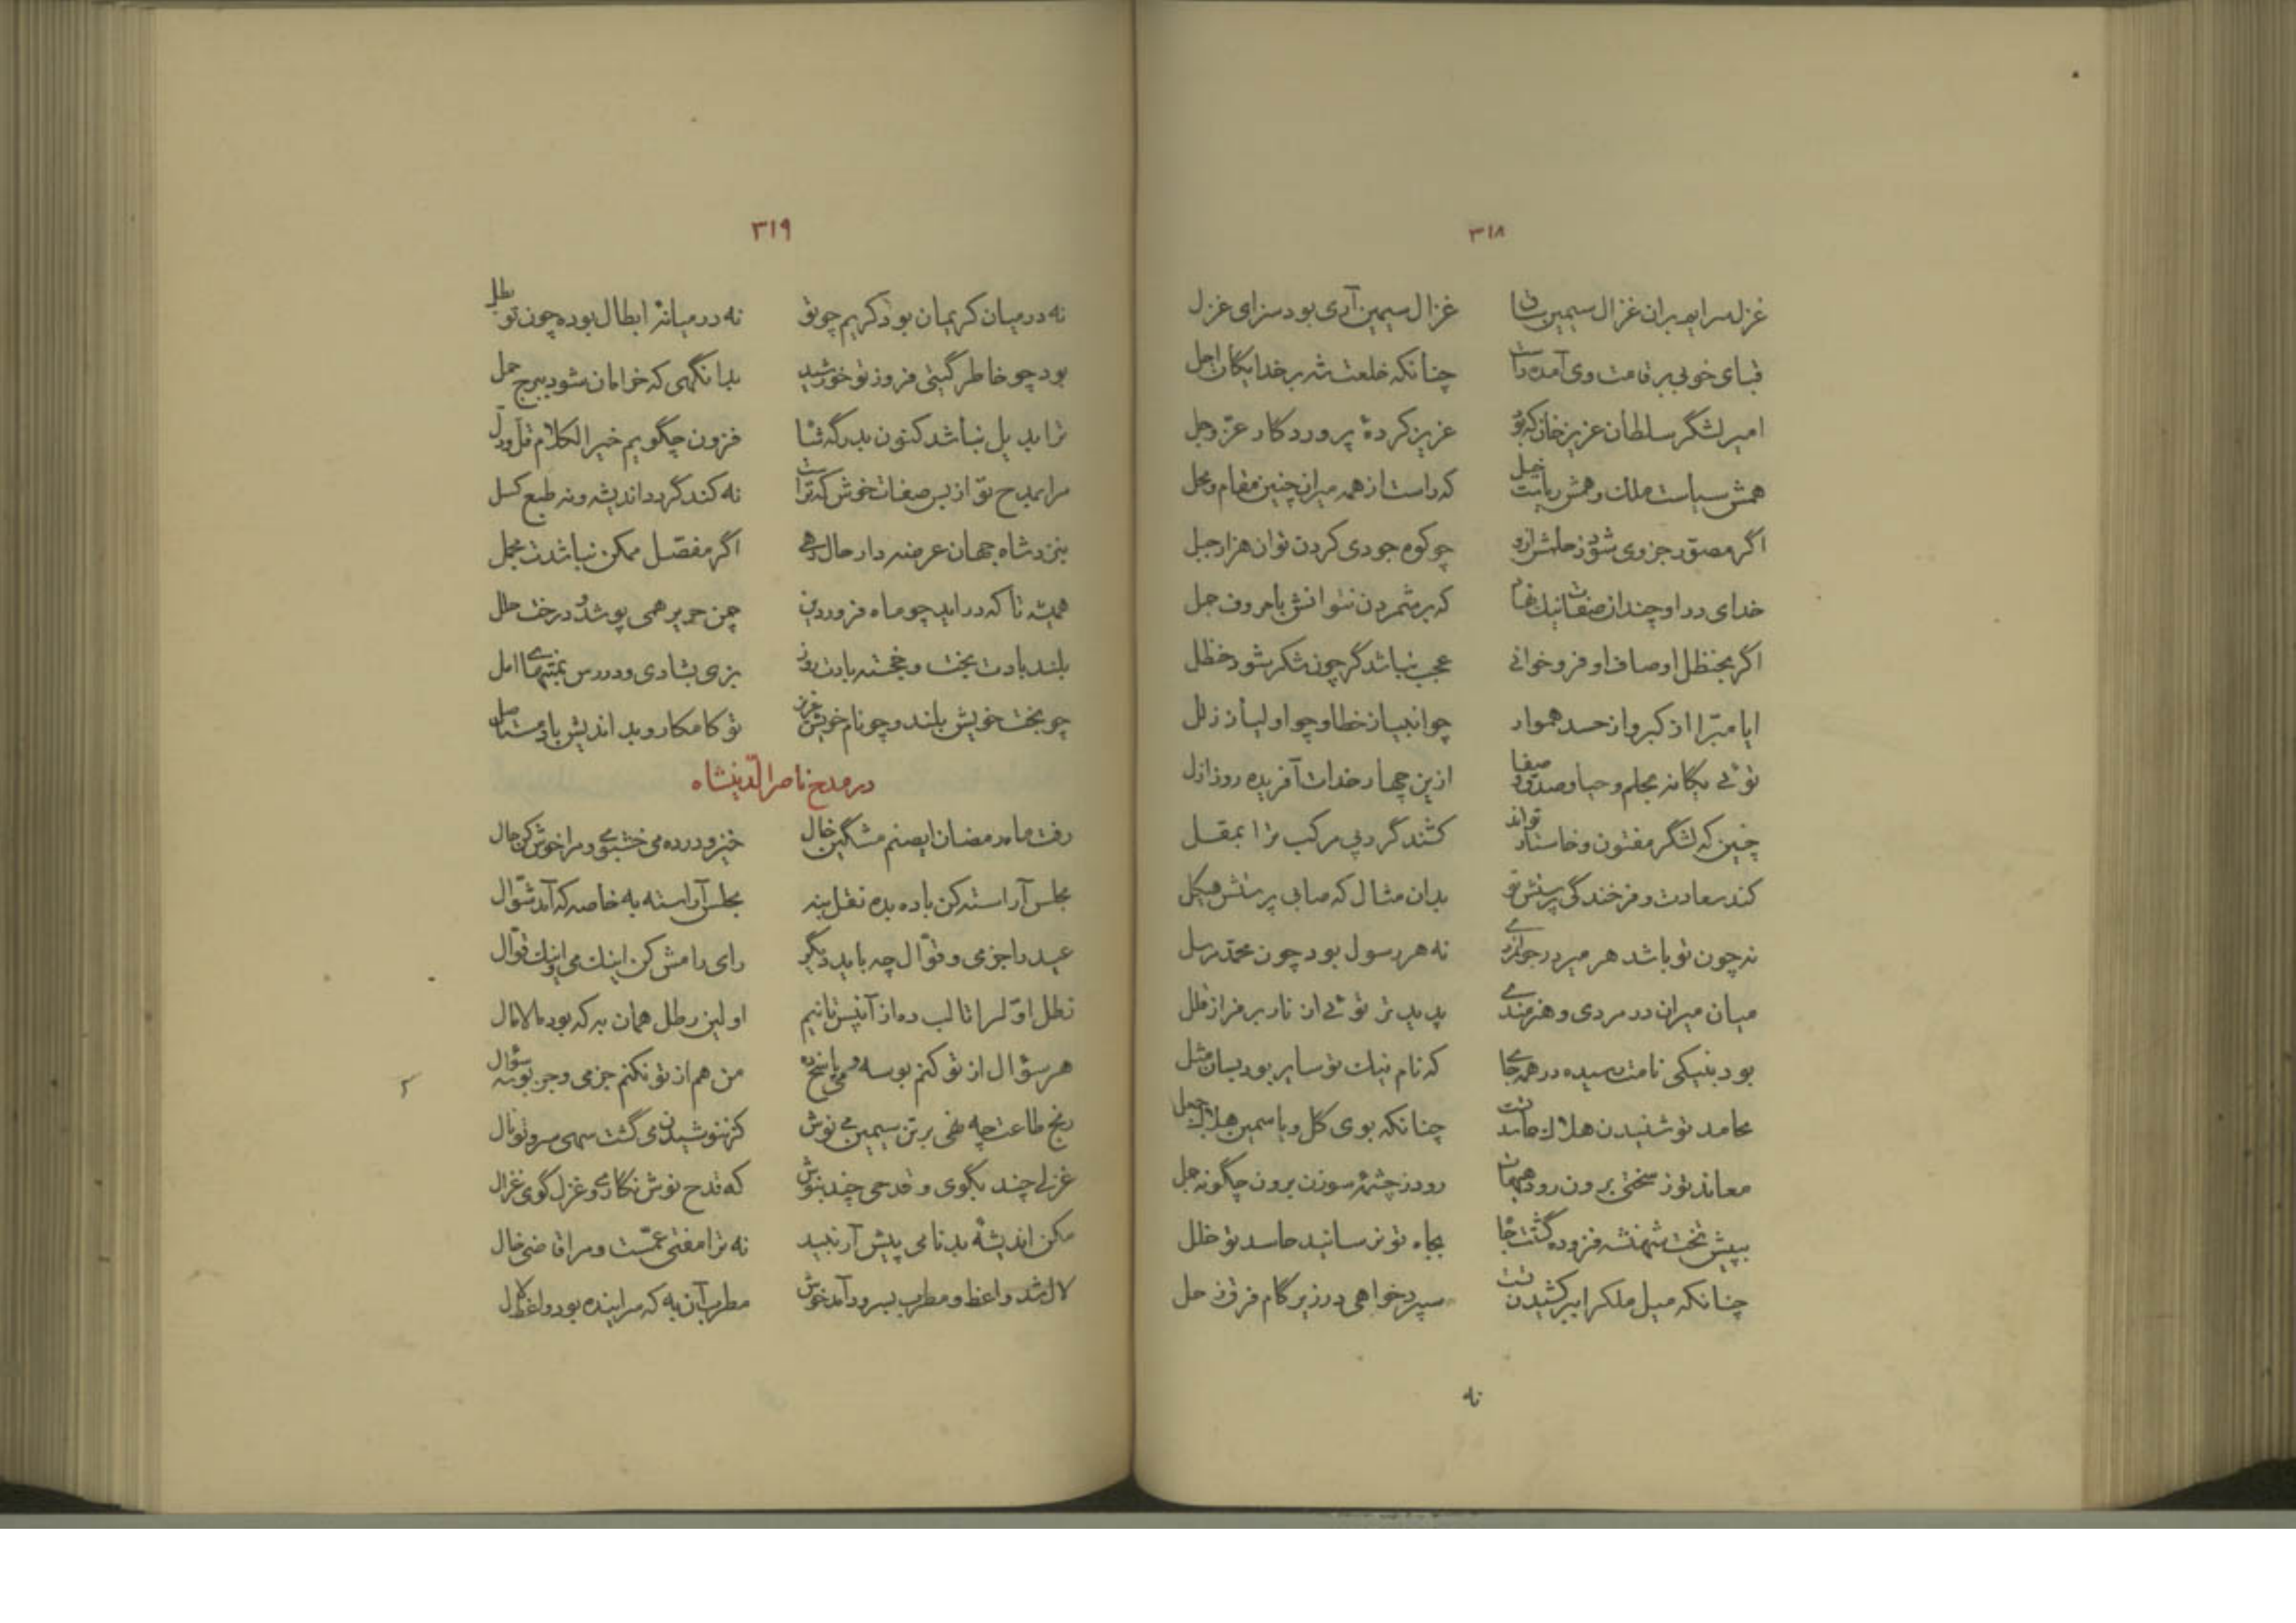 ۳۱۸
غزل سرایم بران غزال سیمین ساق غزال سیمین آری بود سزای غزل
قبای خوبی بر قامت وی آمد راست چنانکه خلعت شه بر خدایگان اجل
امیر لشگر سلطان عزیز خان که بود عزیز کردهٔ پروردگار عزّ وجل
همش سیاست ملک و همش ریاست خیل که راست از همه میران چنین مقام و محل
اگر مصوّر جزوی شود ز حلمش ازو چو کوه جودی کردن توان هزار جبل
خدای در او چندان صفات نیک نهاد که بر شمردن نتوانش با حروف جمل
اگر بحنظل اوصاف او فرو خوانی عجب نباشد گر چون شکر شود حنظل
ایا مبرّا از کبر و از حسد هموار چو انبیا ز خطا و چو اولیا ز زلل
توئی یگانه بحلم و حیا و صدق و صفا ازین چهار خدات آفریده روز ازل
چنین که لشگر مفتون و خاستار تواند کشند گرد پی مرکب ترا بمقل
کند سعادت و فرخندگی پرستش تو بدان مثال که صابی پرستش هیکل
نه چون تو باشد هر میر در جوانمردی نه هر رسول بود چون محمّد مرسل
میان میران در مردی و هنرمندی پدید تر توئی از نار بر فراز قلل
بود بنیکی نامت رسیده در همه جای که نام نیک تو سایر بود بسان مثل
محامد تو شنیدن هلاک حاسد تست چنانکه بوی گل و یاسمین هلاک جعل
معاند تو ز سختی برون رود هیهات رود ز چشمهٔ سوزن برون چگونه جمل
به پیش تخت شهنشه فزوده گشتت جاه بجاه تو نرسانید حاسد تو خلل
چنانکه میل ملک را ببرکشیدن تست سپرد خواهی در زیر گام فرق زحل
نه
۳۱۹
نه در میان کریمان بود کریم چو تو نه در میانهٔ ابطال بوده چون تو بطل
بود چو خاطر گیتی فروز تو خورشید بدانگهی که خرامان شود ببرج حمل
مرا بمدح تو از بس صفات خوش که تراست نه کند گردد اندیشه و نه طبع کسل
بنزد شاه جهان عرضه دار حال رهی اگر مفصّل ممکن نباشدت مجمل
همیشه تا که در آید چو ماه فروردین چمن حریر همی پوشد و درخت حلل
بلند بادت بخت و خجسته بادت روز بزی بشادی و در رس بمنتهای امل
چو بخت خویش بلند و چو نام خویش عزیز تو کامکار و بد اندیش باد مستاصل
در مدح ناصرالدّینشاه
رفت ماه رمضان ایصنم مشگین خال خیز و در ده می خشبوی و مرا خوش کن حال
مجلس آراسته کن باده بده نقل بنه مجلس آراسته به خاصه که آمد شوّال
عید را جز می و قوّال چه باید دیگر رای رامش کن اینک می و اینک قوّال
رطل اوّل را تا لب ده از آنپس تا نیم اولین رطل همان به که بود مالامال
هر سؤال از تو کنم بوسه و می پاسخ ده من هم از تو نکنم جز می و جز بوسه سؤال
رنج طاعت چه نهی بر تن سیمین می نوش کز ننوشیدن می گشت سهی سرو تو نال
غزلی چند بگوی و قدحی چند بنوش که قدح نوش نگاری و غزل گوی غزال
مکن اندیشهٔ بدنامی پیش آر نبید نه ترا مفتی عمّست و مرا قاضی خال
لال شد واعظ و مطرب بسرود آمد خوش مطرب آن به که سراینده بود واعظ لال